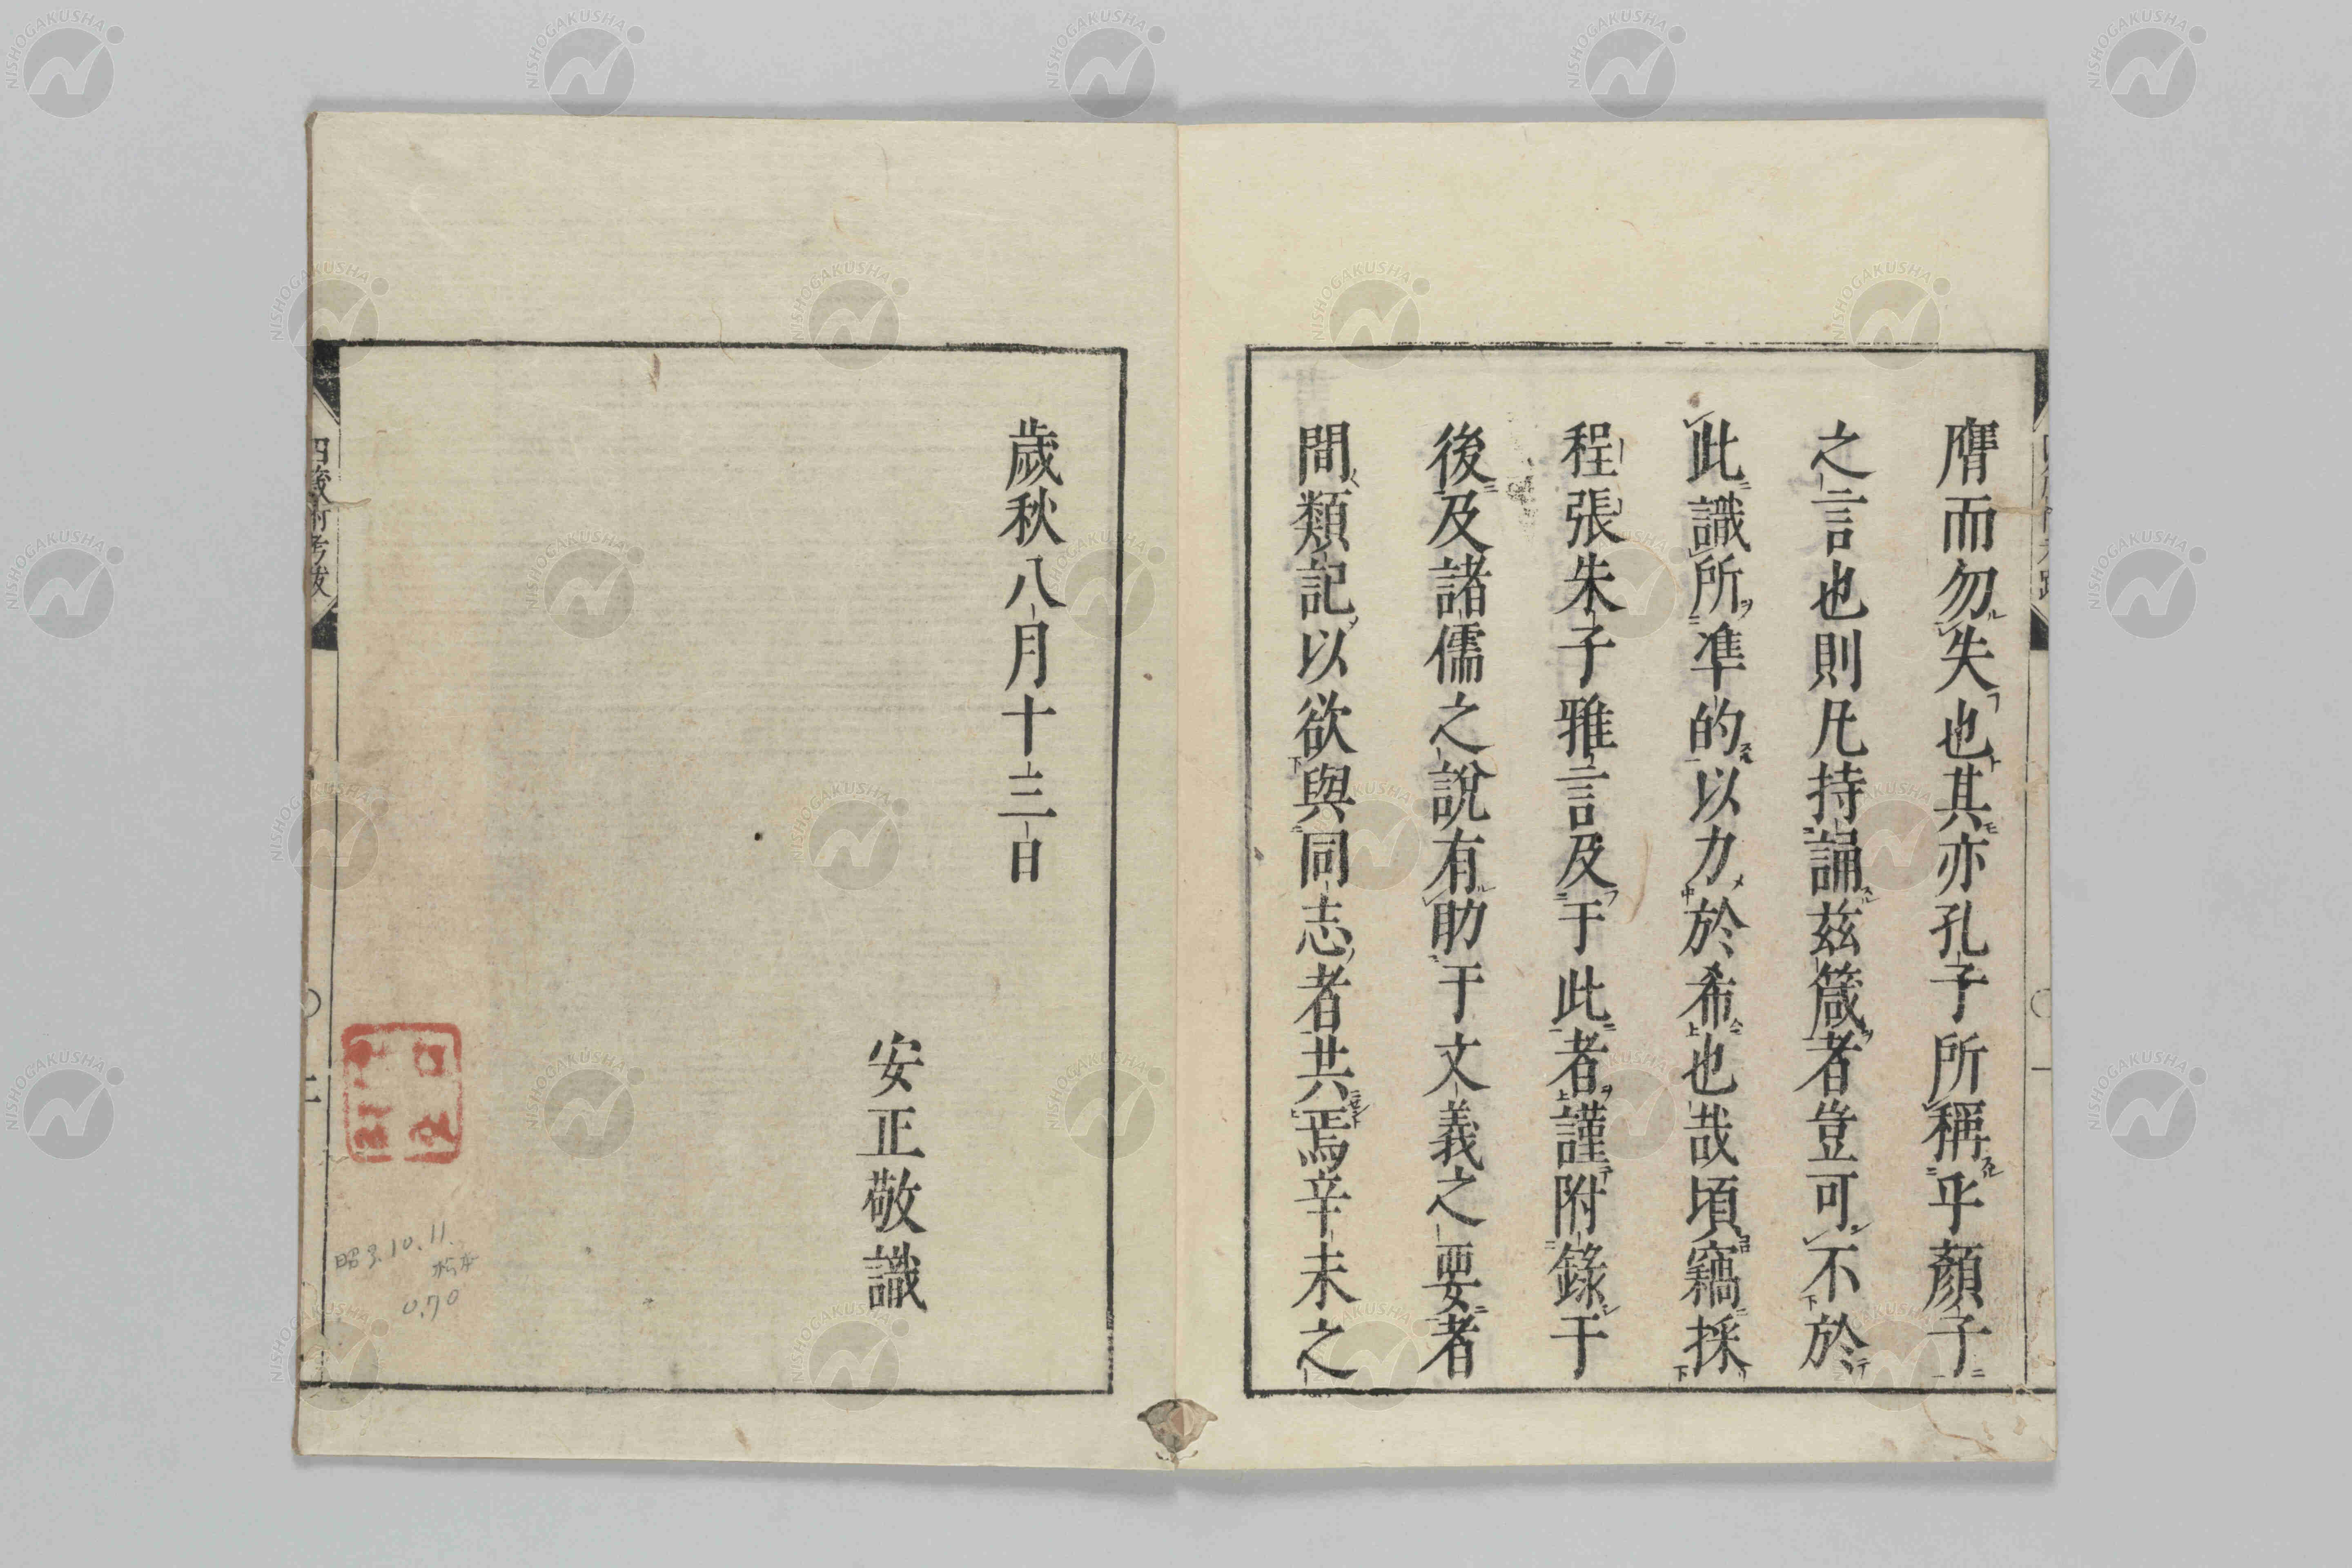 膺而勿失也其亦孔子所稱乎顏子
之言也則凡持誦茲箴者豈可不於
此識所準的以力於希也哉頃竊採
程張朱子雅言及于此者謹附錄于
後及諸儒之說有助于文義之要者
間類記以欲與同志者共焉辛未之
歲秋八月十三日
安正敬識
四箴附考跋
二
昭3.10.11.
松本
0.70
NISHOGAKUSHA